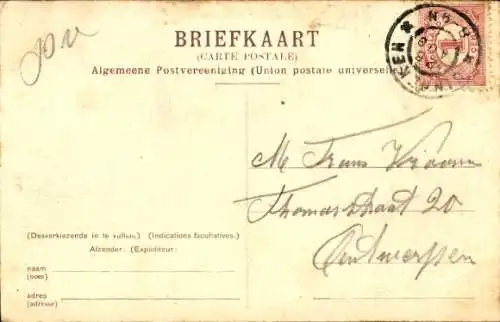 BRIEFKAART
(CARTE POSTALE)
Algemeene Postvereeniging (Union postale universelle)
M Frans
Thomasstraat 20
Antwerpen
(Desverkiezende in te vullen.) (Indications facultatives.)
Afzender: (Expéditeur:
naam
(nom)
adres
(adresse)